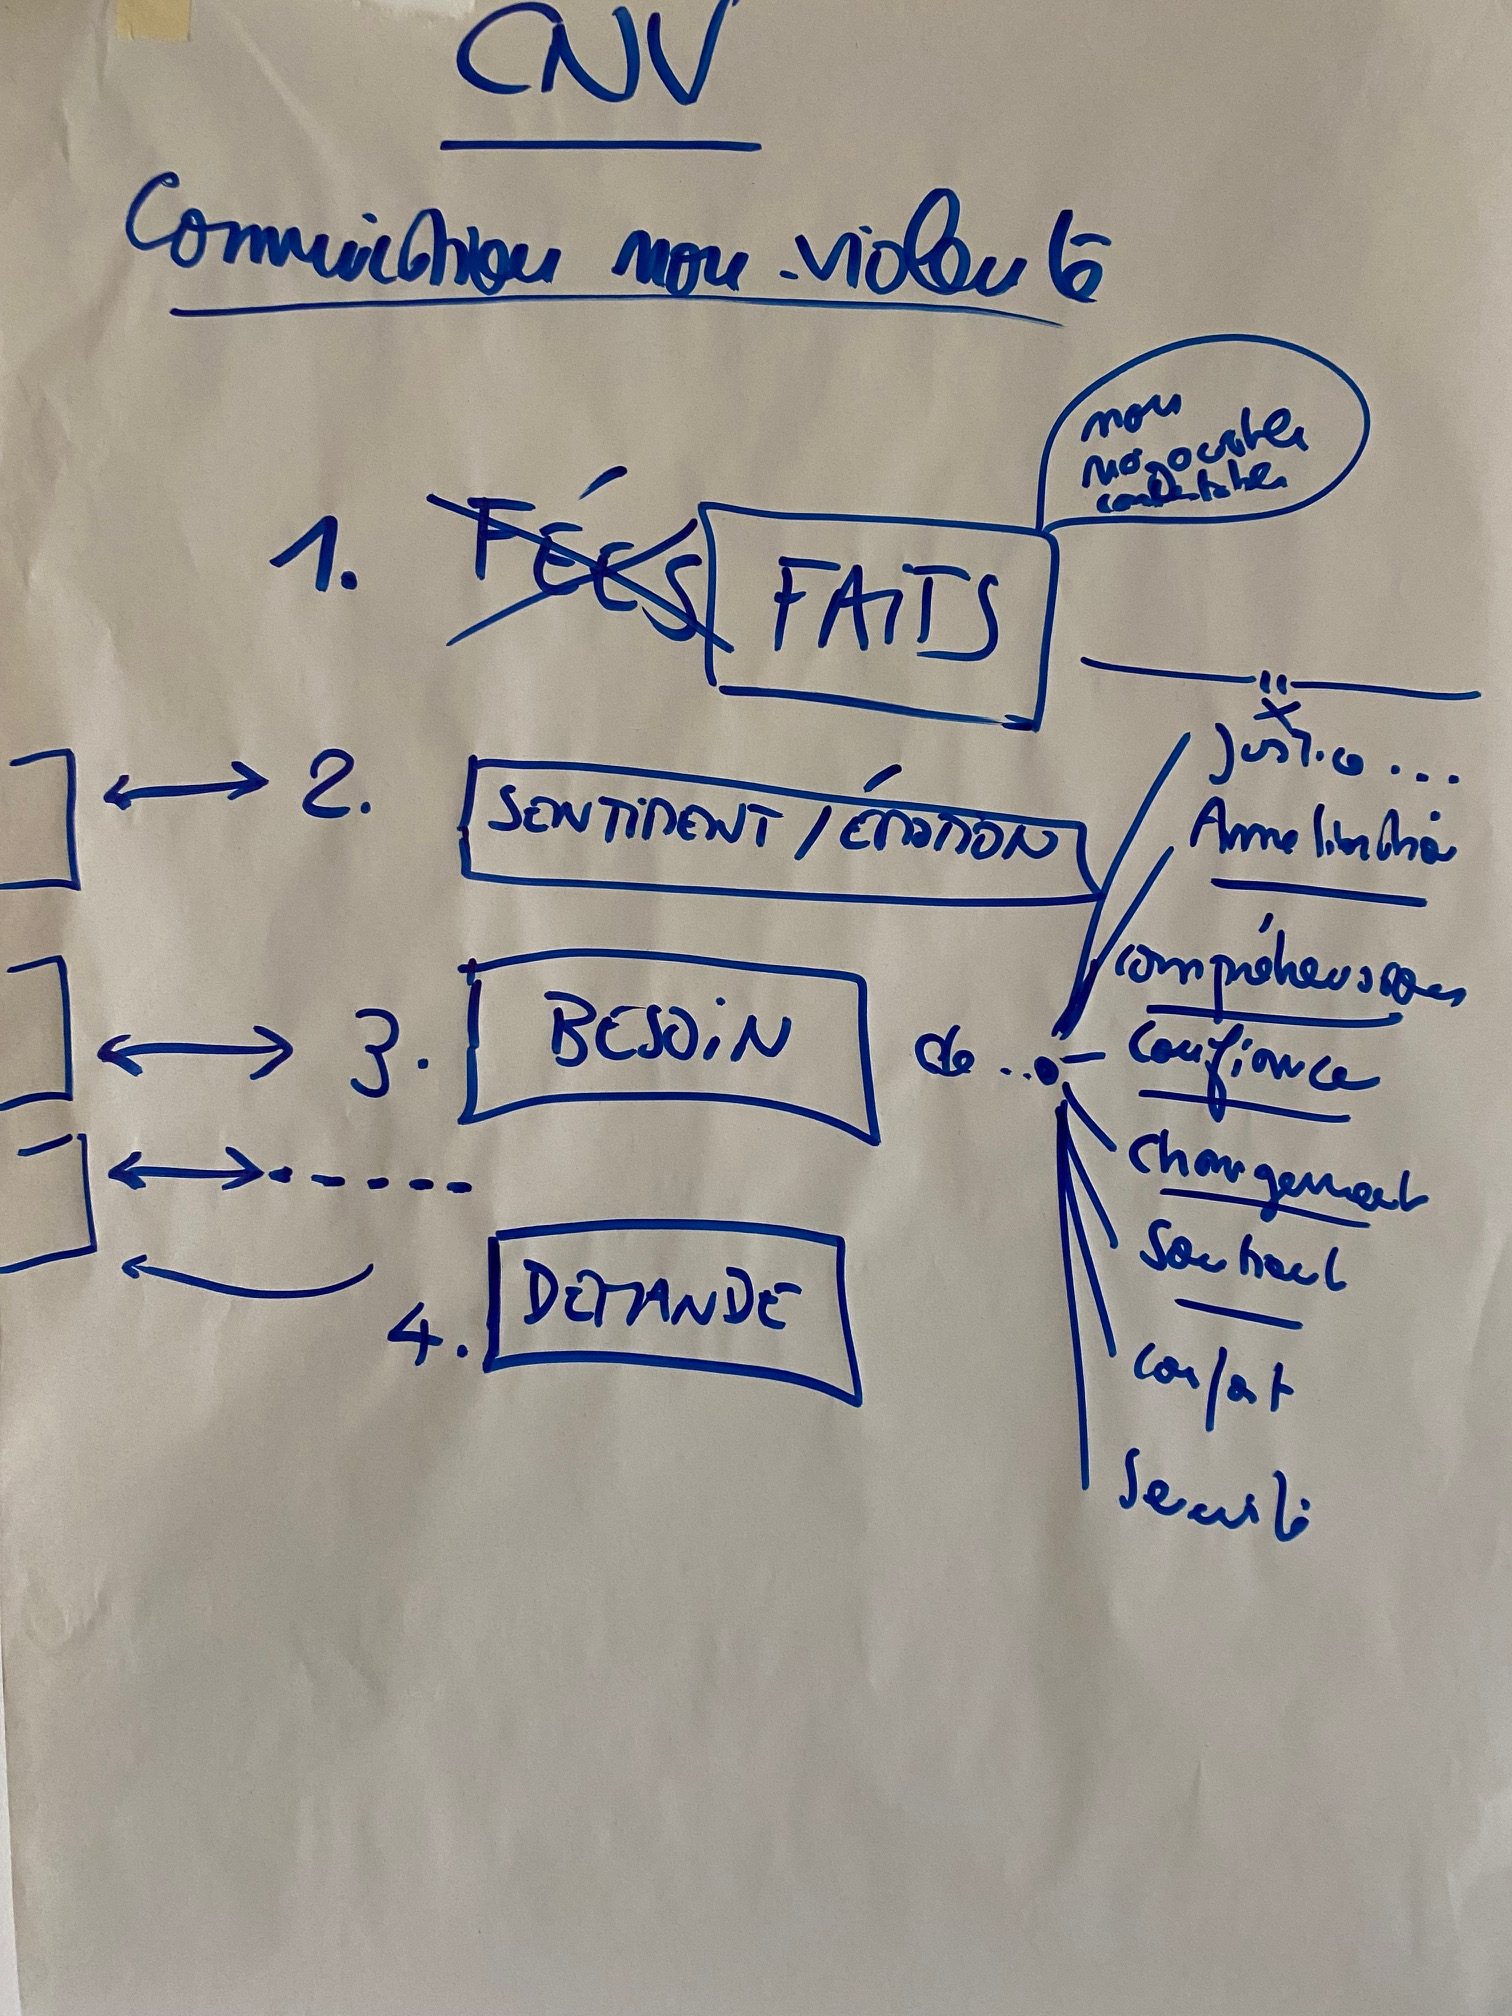 CNV
Communication non-violente
non
négociables
contestables
1. FÉES FAITS
Justice...
2. SENTIMENT / ÉMOTION
Amélioration
compréhension
3. BESOIN de...
Confiance
Changement
Soutient
4. DEMANDE
Confort
Sécurité